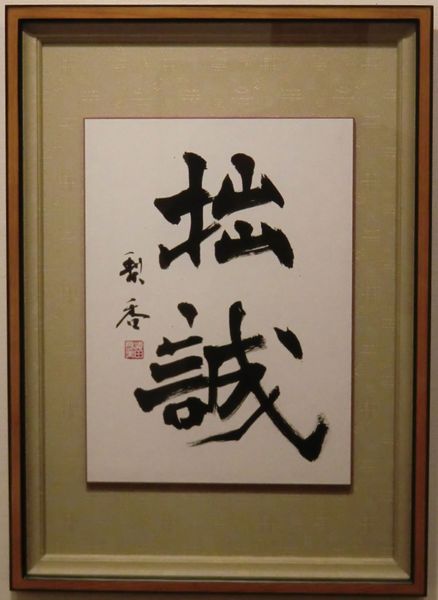 拙誠
梨香